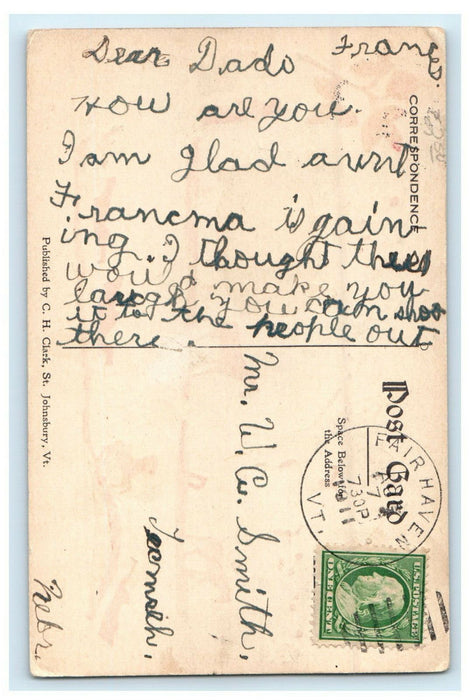 Dear Dado Frances.
How are you.
I am glad aunt
Francma is gain-
ing. I thought this
woul make you
laugh, you can shoo
it to the people out
there.
CORRESPONDENCE
Published by C. H. Clark, St. Johnsbury, Vt.
Post Card
Space Below for
the Address
FAIR HAVEN
7
730P
VT.
U.S. POSTAGE
ONE CENT
Mr. W. C. Smith,
Nebr.